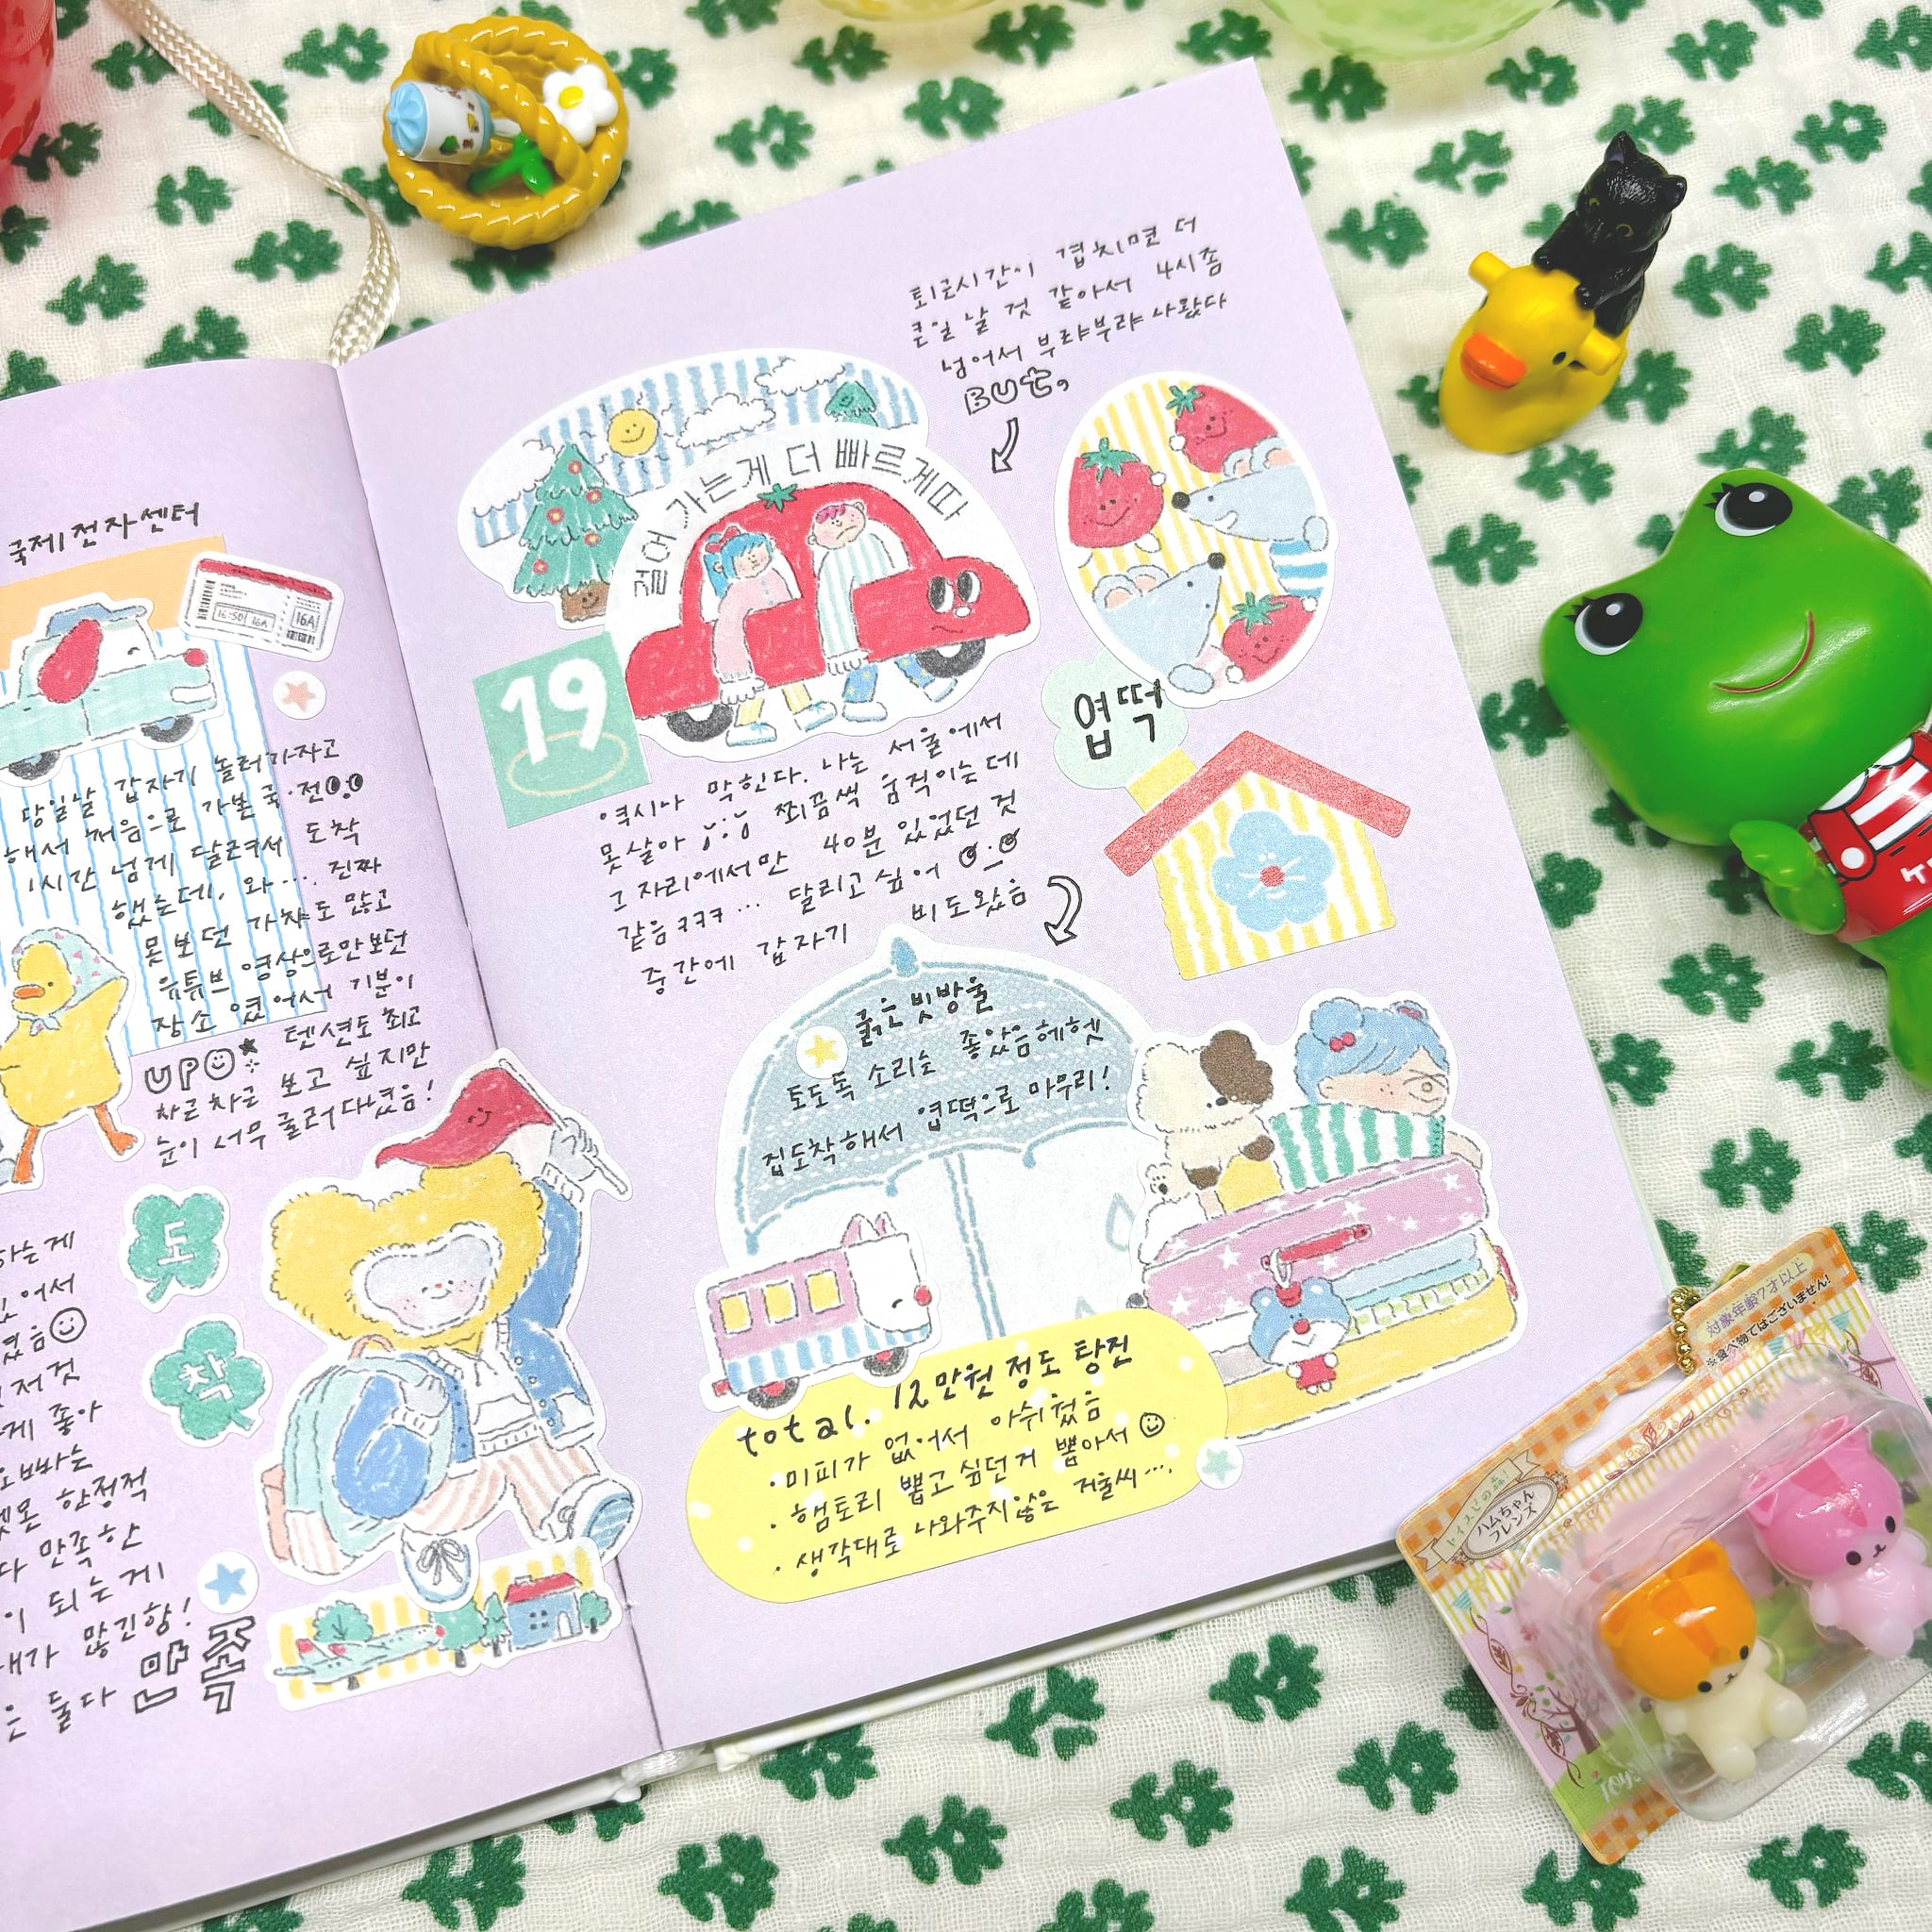 국제전자센터
16:50
16A
16A
당일날 갑자기 놀러가자고
해서 처음으로 가본 국·전
1시간 넘게 달려서 도착
했는데, 와···. 진짜
못 보던 가챠도 많고
유튜브 영상으로만 보던
장소 였어서 기분이
UP 텐션도 최고
차근차근 보고 싶지만
눈이 너무 굴러다녔음!
도
착
하는게
있어서
했음
저것
게 좋아
오빠는
한정적
다 만족한
이 되는게
내가 많긴함!
은 둘다 만족
퇴근시간이 겹치면 더
큰일 날 것 같아서 4시좀
넘어서 부랴부랴 나왔다
BUt,
걸어 가는게 더 빠르게따
19
엽떡
역시나 막힌다. 나는 서울에서
못살아 쬐끔색 움직이는데
그 자리에서만 40분 있었던 것
같음ㅋㅋㅋ··· 달리고싶어
중간에 갑자기 비도왔음
굵은 빗방울
토도독 소리는 좋았음헤헷
집도착해서 엽떡으로 마무리!
total. 12만원 정도 탕진
·미피가 없어서 아쉬웠음
·햄토리 뽑고 싶던거 뽑아서
·생각대로 나와주지않은 저울씨···.
対象年齢7才以上
※食べ物ではございません!
ハムちゃん
フレンズ
ケ